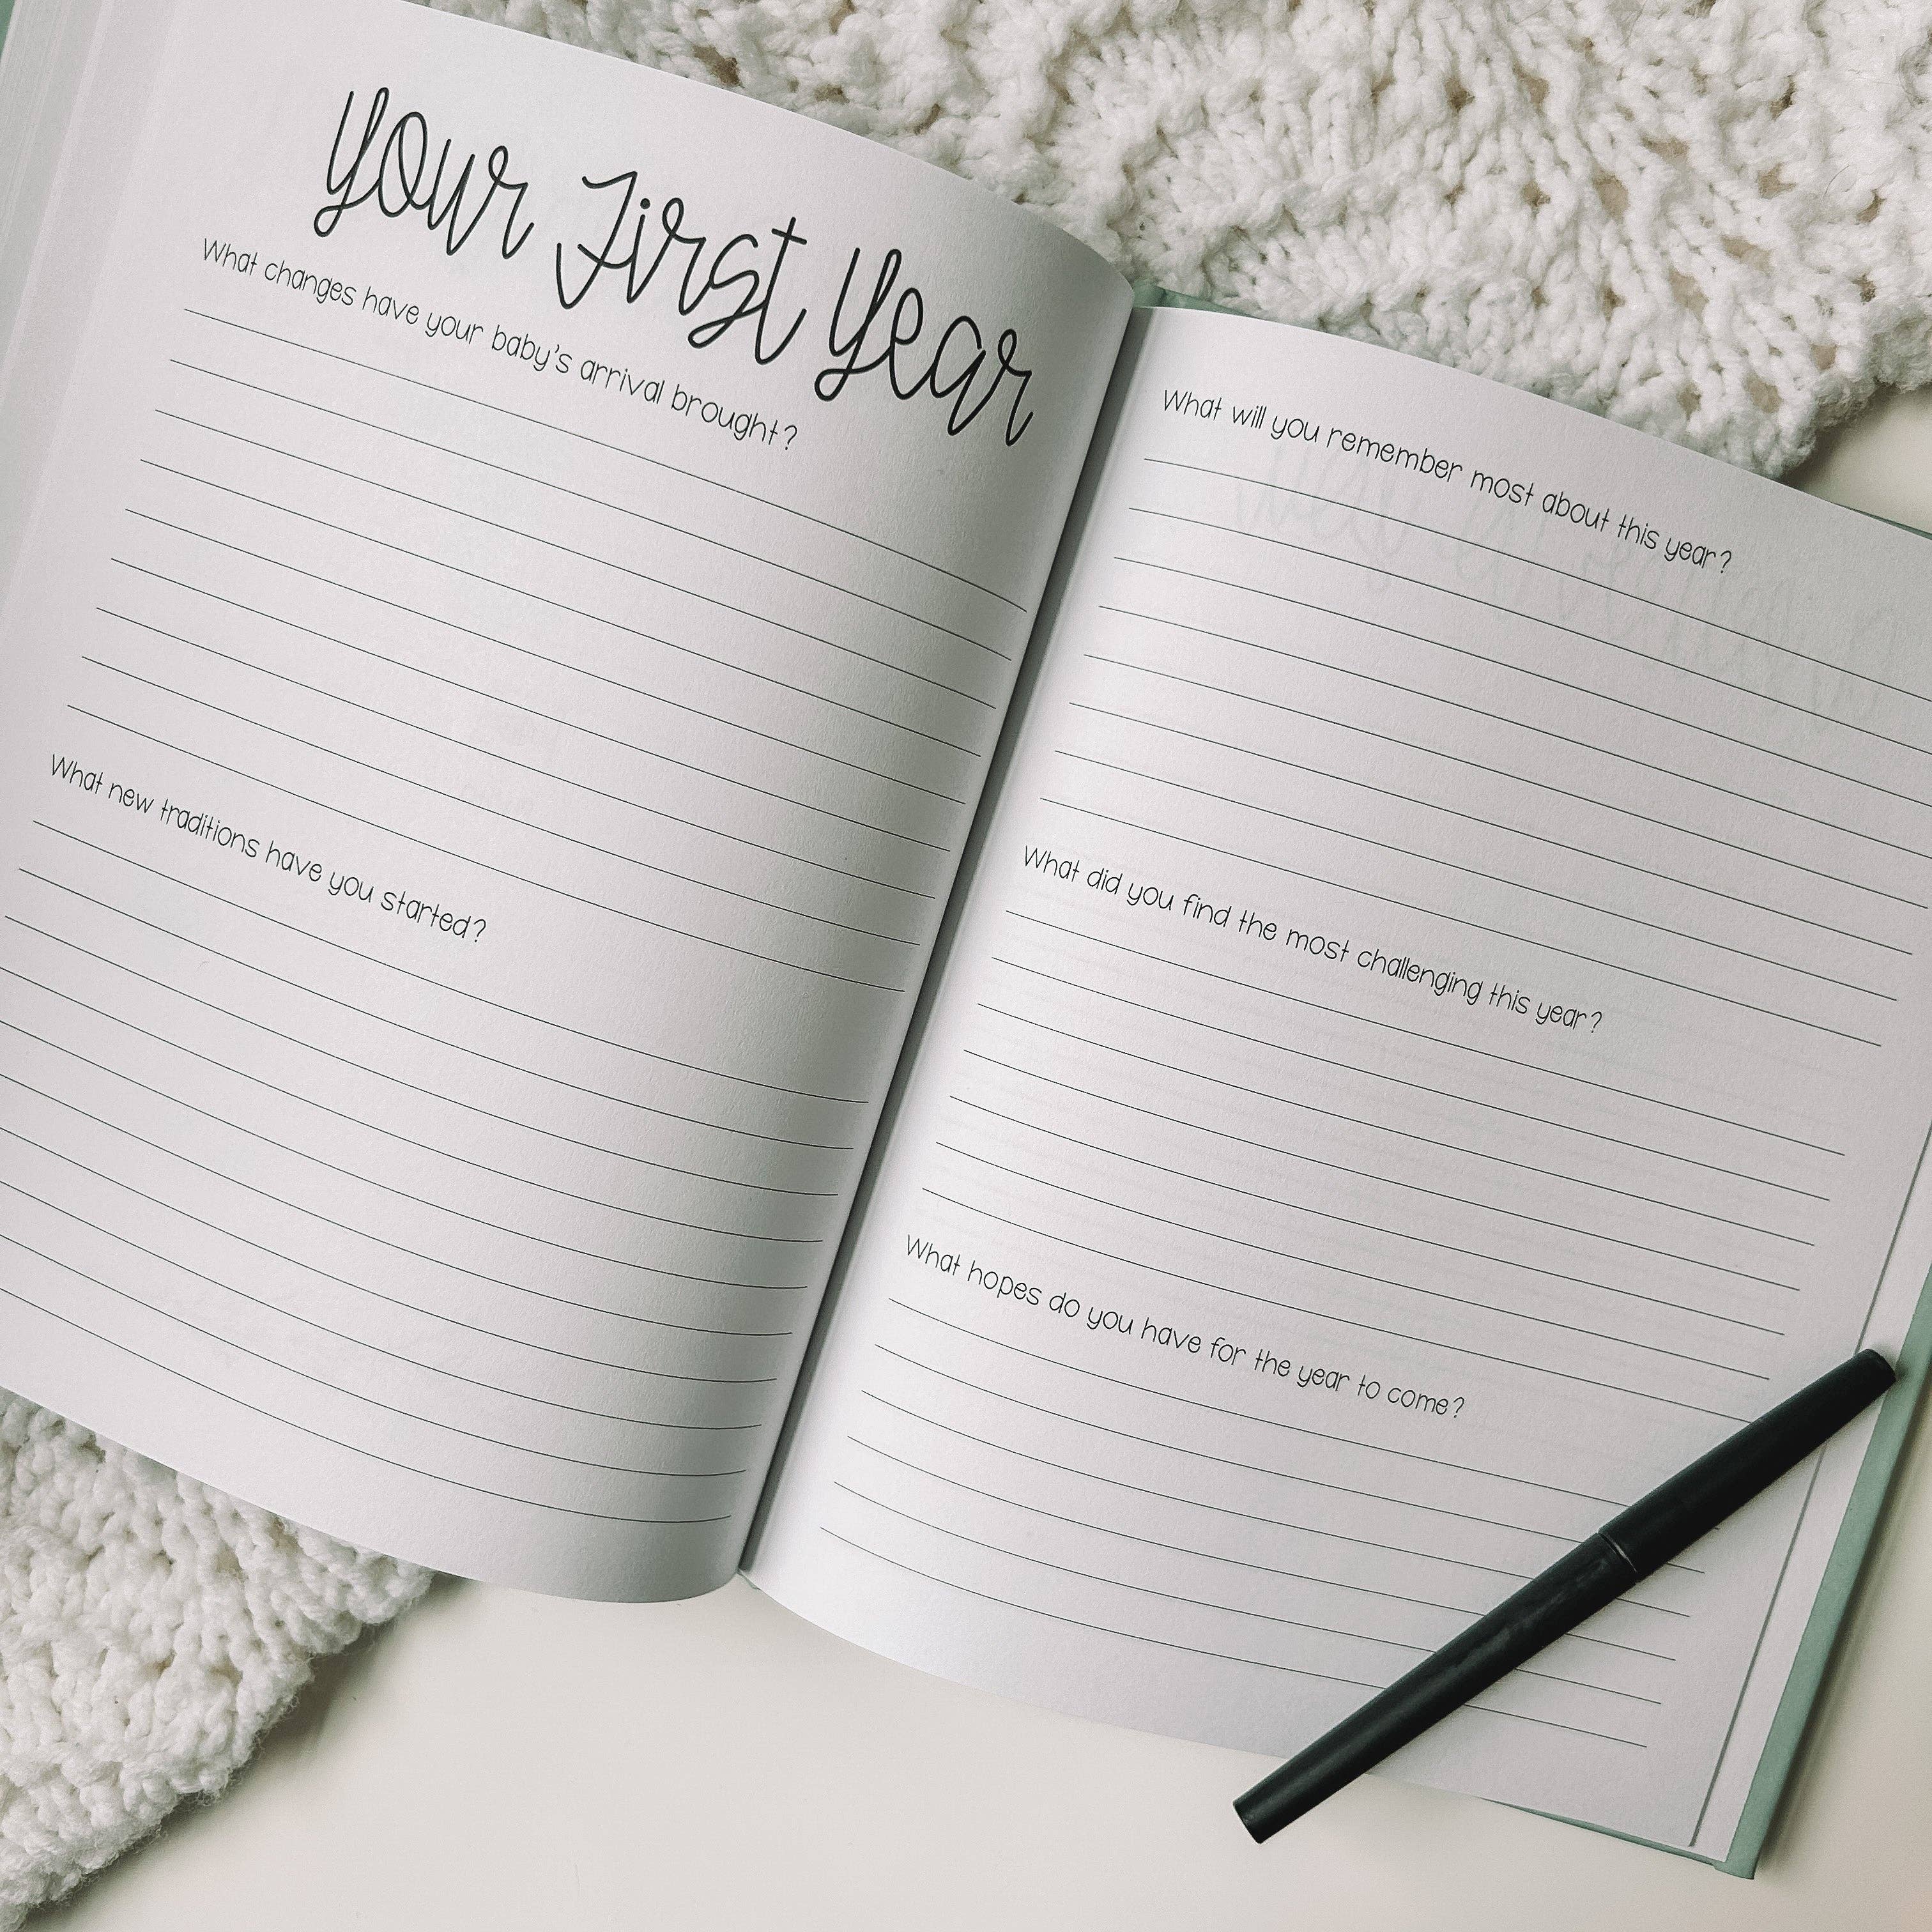 your First Year
What changes have your baby's arrival brought?
What new traditions have you started?
What will you remember most about this year?
What did you find the most challenging this year?
What hopes do you have for the year to come?